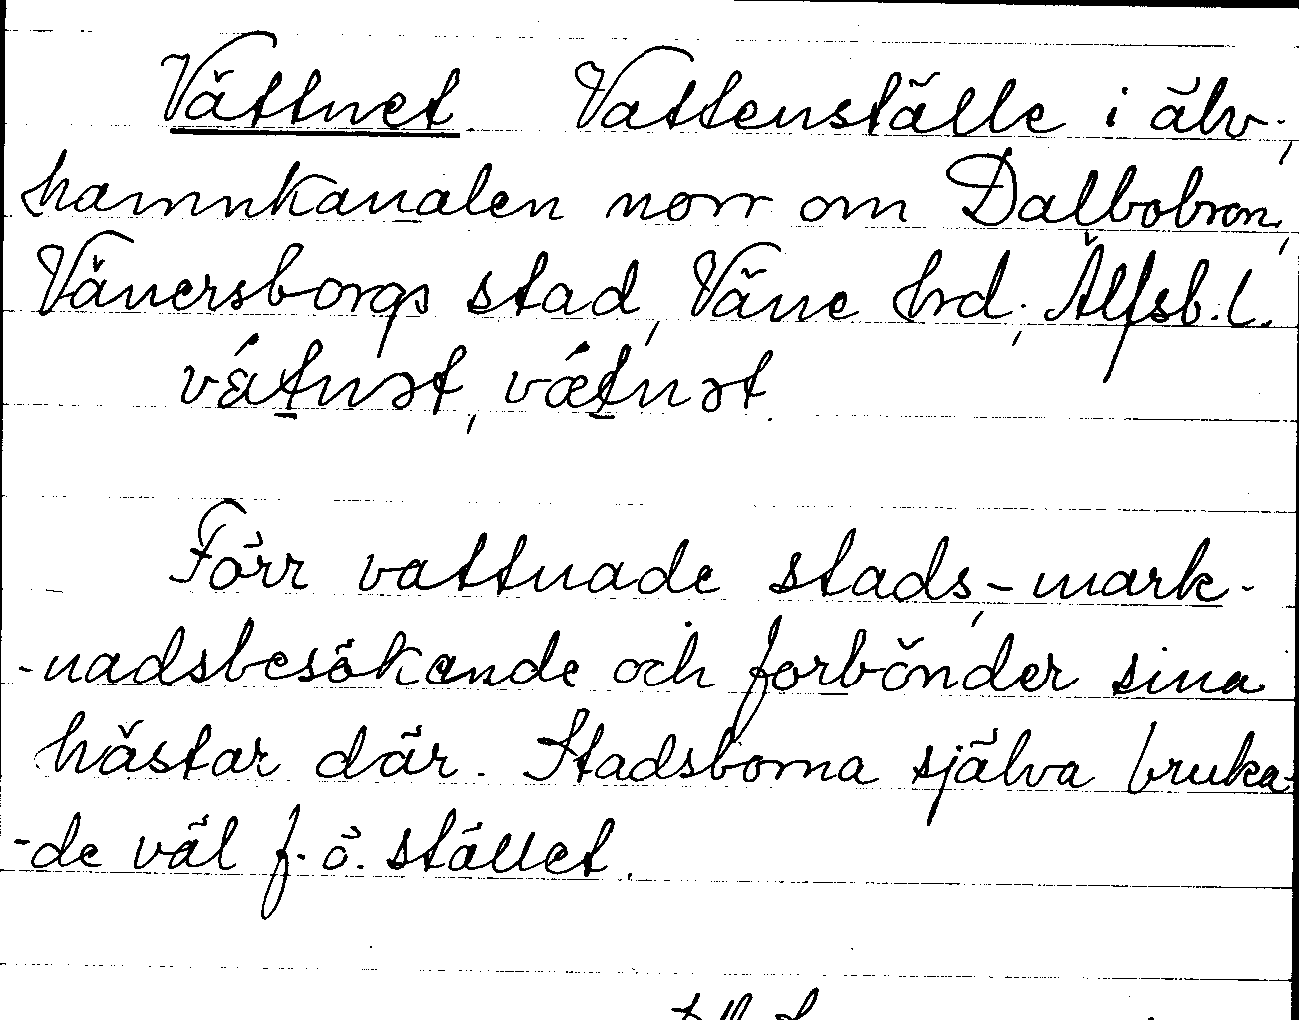 Vättnet. Vattenställe i älv,
hamnkanalen norr om Dalbobron,
Vänersborgs stad, Väne hrd, Älfsb. l.
vɛ́tnət, vǽtnət.
Förr vattnade stads,- mark-
-nadsbesökande och forbönder sina
hästar där. Stadsborna själva bruka-
-de väl f. ö. stället.